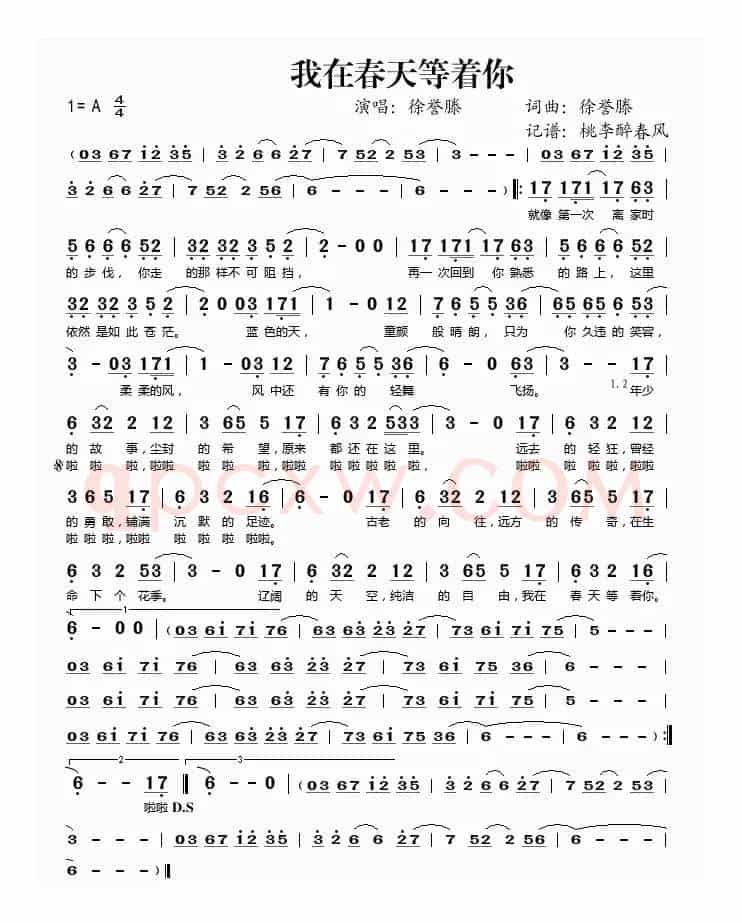 我在春天等着你
1=A 4/4 演唱：徐誉滕 词曲：徐誉滕
记谱：桃李醉春风
(03 67 i2 35 | 32 6 6 27 | 7 52 2 53 | 3 - - - | 03 67 i2 35 |
32 6 6 27 | 7 52 2 56 | 6 - - - | 6 - - - ) ‖: 17 171 17 63 |
就像 第一次 离 家时
5 6 6 6 52 | 32 32 3 5 2 | 2 - 0 0 | 17 171 17 63 | 5 6 6 6 52 |
的 步 伐，你走 的那 样不 可 阻 挡， 再一 次回到 你 熟悉 的 路 上，这里
32 32 32 3 52 | 2 0 03 171 | 1 - 0 12 | 7 6 5 5 36 | 6 65 6 53 |
依然 是如 此 苍茫。 蓝 色的天， 重颜 般 晴 朗，只为 你 久违 的 笑容，
3 - 03 171 | 1 - 03 12 | 7 6 5 5 36 | 6 - 0 63 | 3 - - 17 |
柔 柔的风， 风 中还 有 你 的 轻舞 飞扬。 1.2 年少
6 32 2 12 | 3 65 5 17 | 6 3 2 533 | 3 - 0 17 | 6 32 2 12 |
的 故 事，尘封 的 希 望，原来 都 还 在 这 里。 远去 的 轻 狂，曾经
啦 啦 啦，啦啦 啦 啦 啦，啦啦 啦 啦 啦 啦 啦， 啦啦 啦 啦 啦，啦啦
3 6 5 17 | 6 3 2 16 | 6 - 0 17 | 6 32 2 12 | 3 65 5 17 |
的 勇 敢，铺满 沉 默 的 足迹。 古老 的 向 往，远方 的 传 奇，在生
啦 啦 啦，啦啦 啦 啦 啦 啦啦。
6 3 2 53 | 3 - 0 17 | 6 32 2 12 | 3 65 5 17 | 6 3 2 16 |
命 下 个 花季。 辽阔 的 天 空，纯洁 的 自 由，我在 春 天 等 着你。
1
6 - 0 0 | (03 6i 7i 76 | 63 63 23 27 | 73 6i 75 65 | 5 - - - |
03 6i 7i 76 | 63 63 23 27 | 73 6i 75 36 | 6 - - - |
03 6i 7i 76 | 63 63 23 27 | 73 6i 75 65 | 5 - - - |
03 6i 7i 76 | 63 63 23 27 | 73 6i 75 36 | 6 - - - | 6 - - - ) :‖
2 3
6 - - 17 ‖ 6 - - 0 | (03 67 i2 35 | 32 6 6 27 | 7 52 2 53 |
啦啦 D.S
3 - - - | 03 67 i2 35 | 32 6 6 27 | 7 52 2 56 | 6 - - - |
6 - - - ) ‖
qpcxw.COM